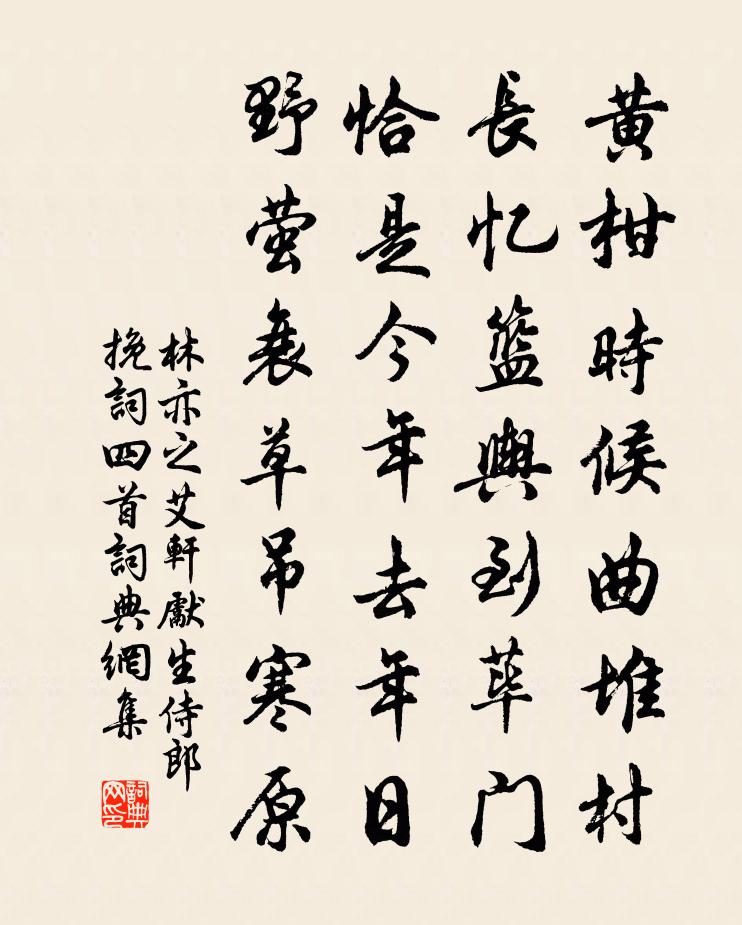 黃柑時候曲堆村
長忆籃輿到荜門
恰是今年去年日
野萤衰草吊寒原
林亦之艾軒獻生侍郎
挽詞四首詞典網集
詞典
网印